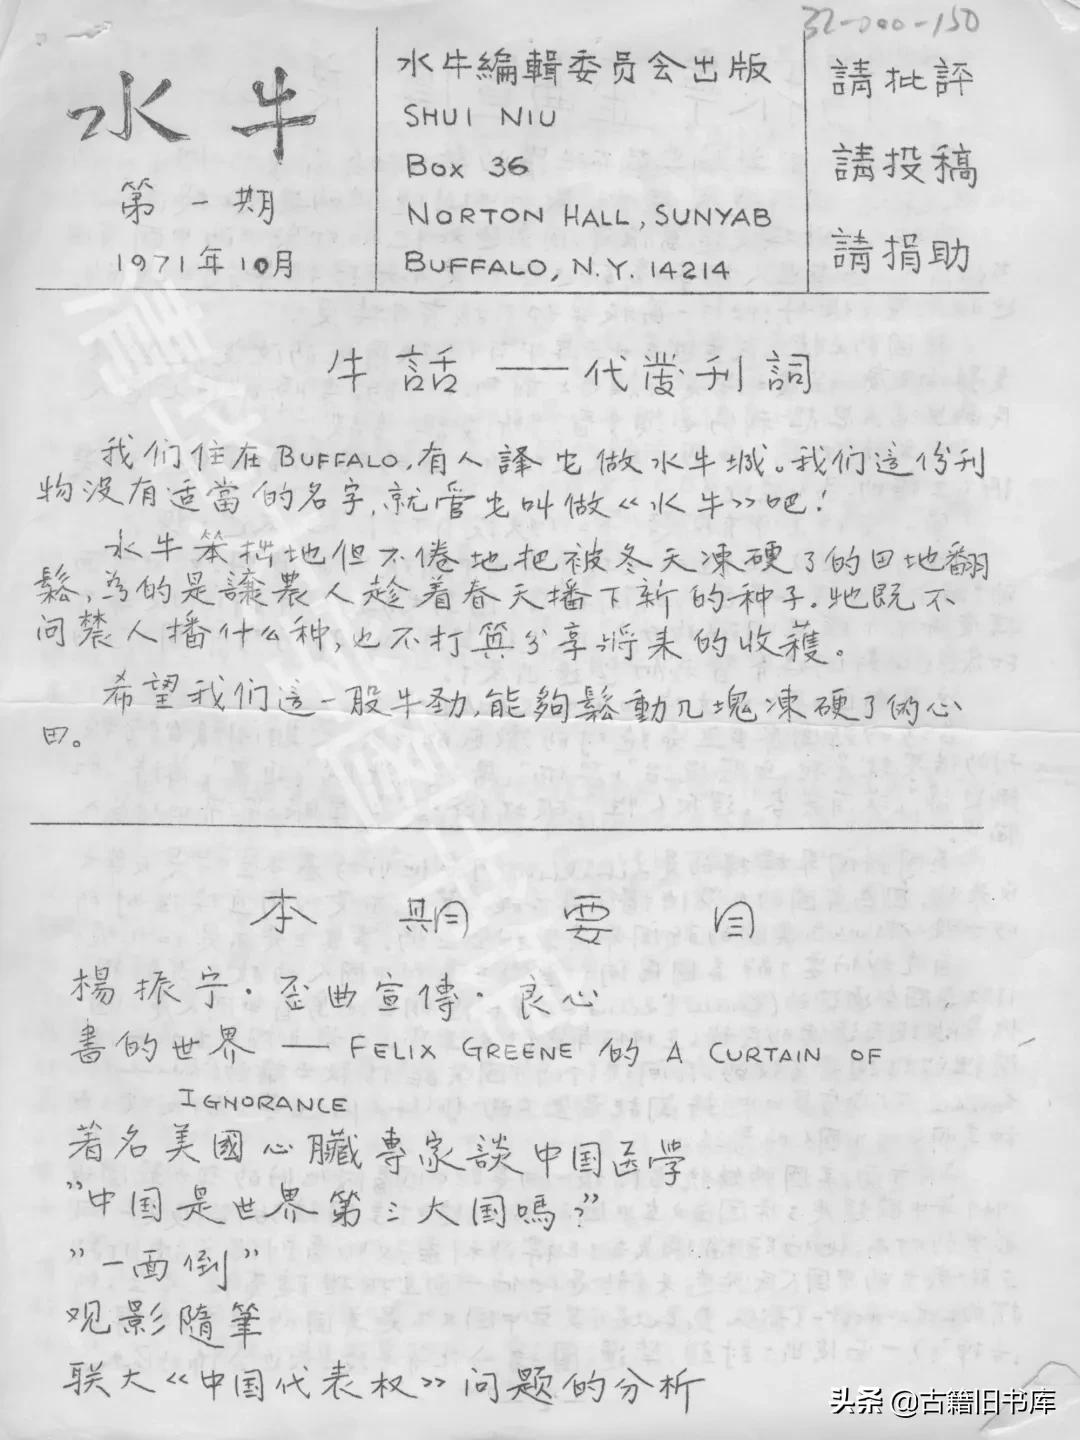 32-000-150
水牛
第一期
1971年10月
水牛編輯委员会出版
SHUI NIU
BOX 36
NORTON HALL, SUNYAB
BUFFALO, N.Y. 14214
請批評
請投稿
請捐助
牛話——代發刊詞
我们住在BUFFALO,有人譯它做水牛城。我们這份刊
物没有适當的名字,就管它叫做《水牛》吧!
水牛笨拙地但不倦地把被冬天凍硬了的田地翻
鬆,為的是讓農人趁着春天播下新的种子.牠既不
问農人播什么种,也不打算分享將来的收穫。
希望我们這一股牛劲,能夠鬆動几塊凍硬了的心
田。
本期要目
楊振宁·歪曲宣傳·良心
書的世界——FELIX GREENE 的 A CURTAIN OF
IGNORANCE
著名美國心臟專家談中国医学
"中国是世界第三大国嗎?"
"一面倒"
观影隨筆
联大《中国代表权》问题的分析
头条@古籍旧书库